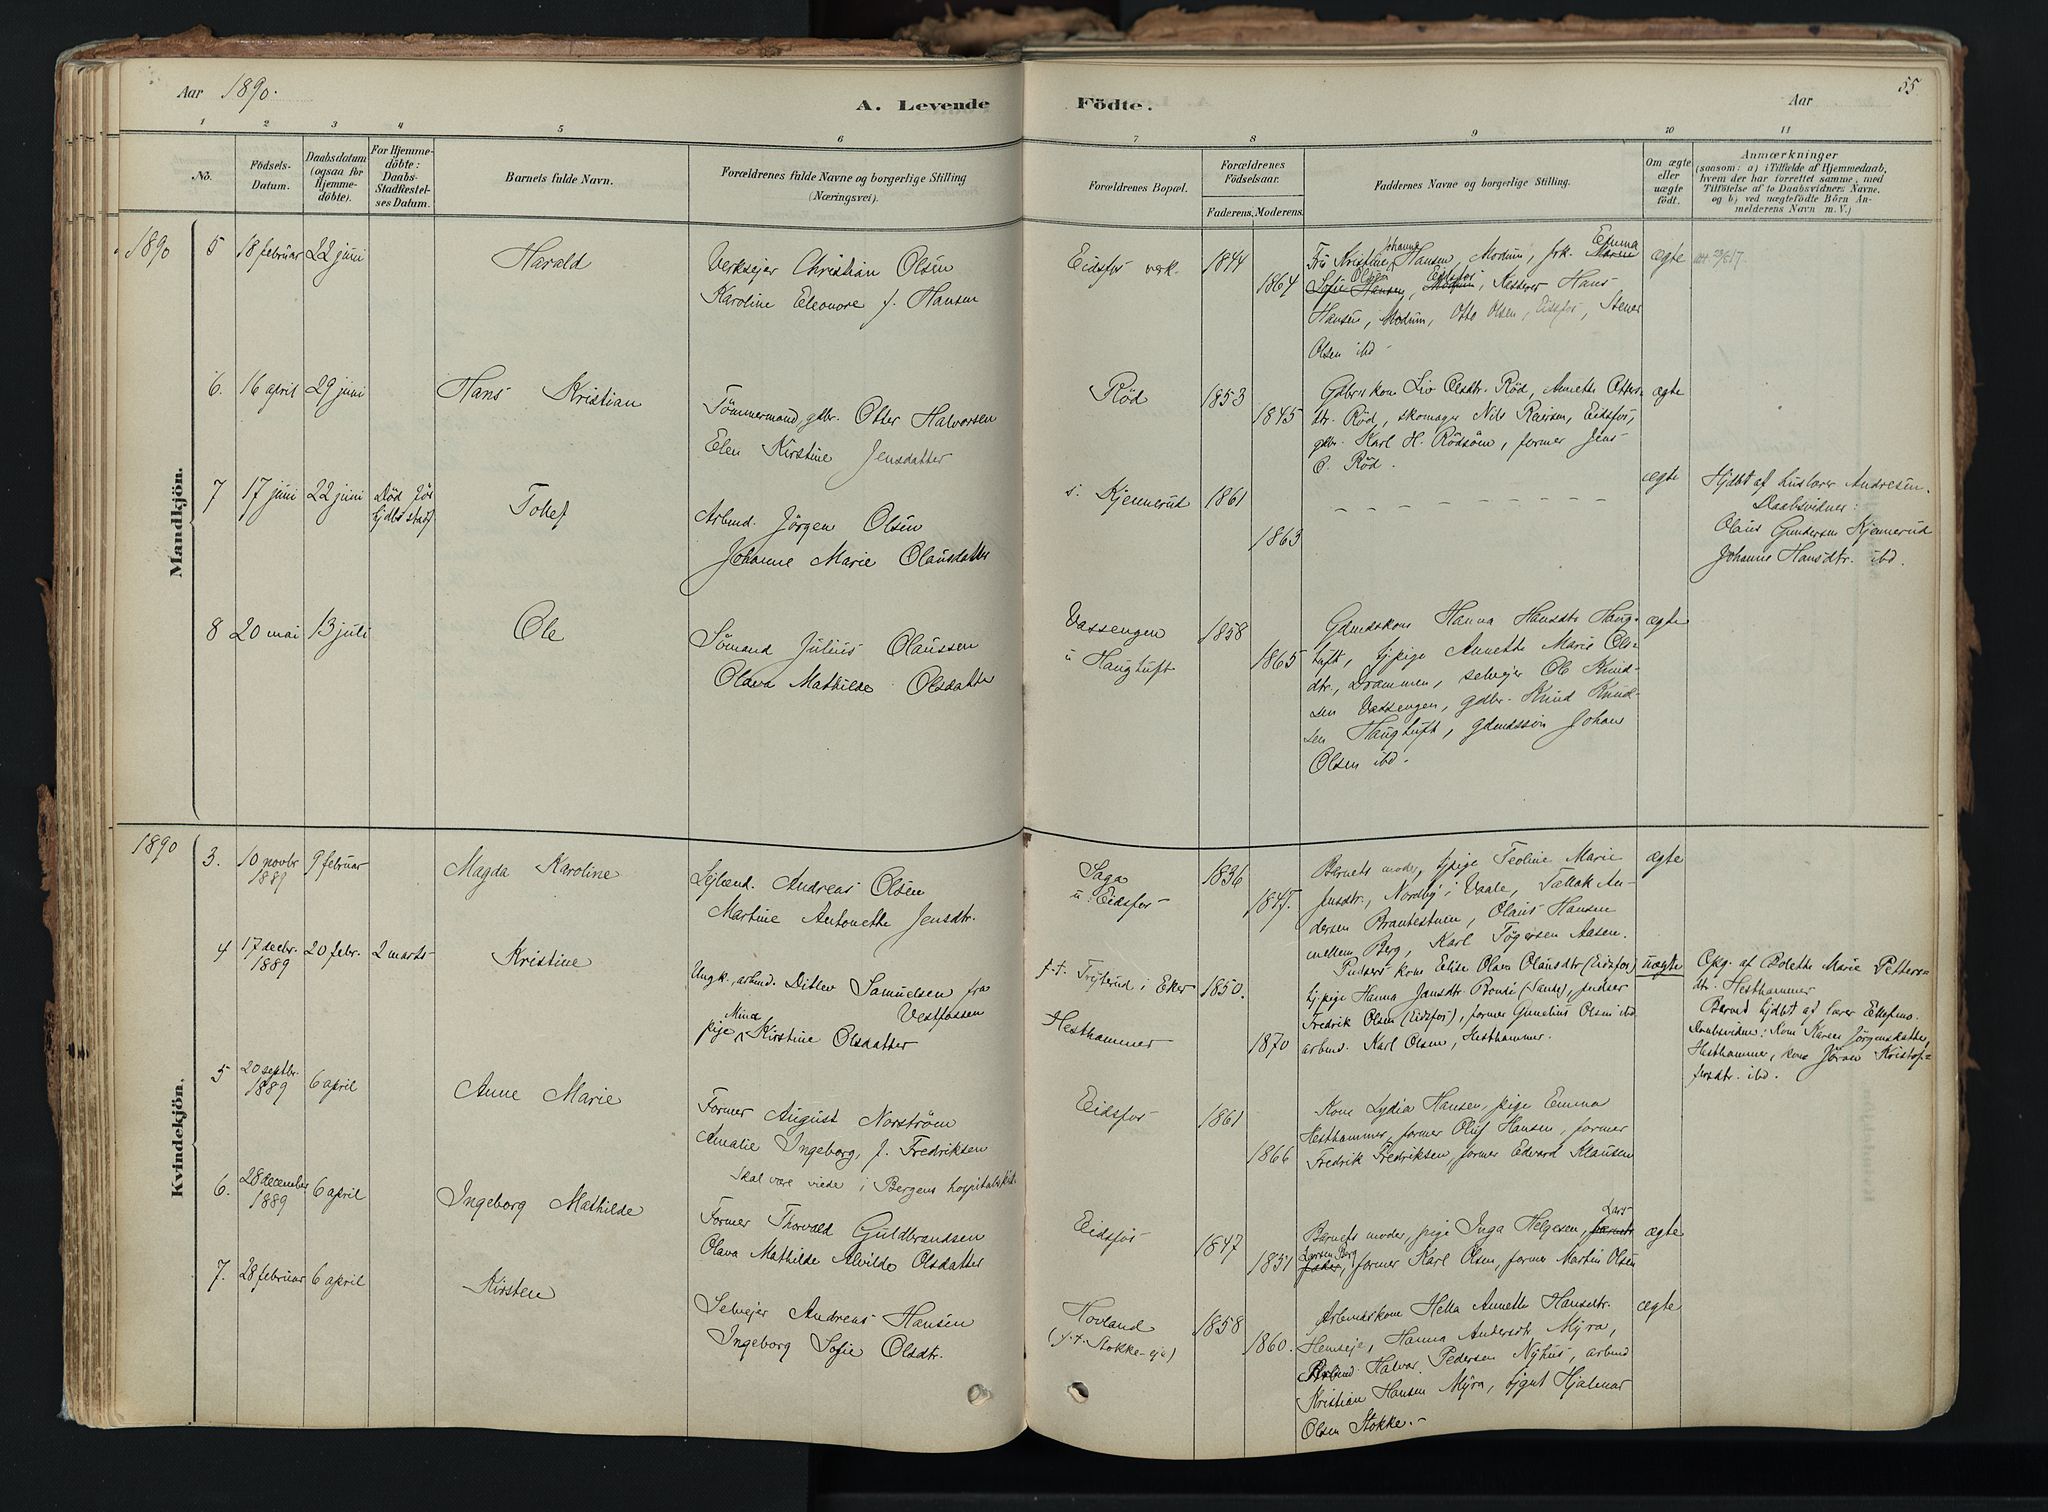 Aar 1890.
A. Levende
Födte.
Aar
55
1 2 3 4 5 6 7 8 9 10 11
No.
Födsels-Datum.
Daabsdatum (ogsaa för Hjemmedöbte).
For Hjemmedöbte: Daabs-Stadfæstelses Datum.
Barnets fulde Navn.
Forældrenes fulde Navne og borgerlige Stilling
(Næringsvei).
Forældrenes Bopæl.
Forældrenes Födselsaar.
Faderens. Moderens.
Faddernes Navne og borgerlige Stilling.
Om ægte eller uægte födt.
Anmærkninger
(saasom: a) i Tilfælde af Hjemmedaab,
hvem der har forrettet samme, med
Tilföielse af to Daabsvidners Navne,
og b) ved uægtefödte Börn Anmelderens Navn m. V.)
Mandkjön.
1890
5 18 februar 22 juni
Harald
Verksejer Christian Olsen
Karoline Eleonore f. Hansen
Eidsfos verk.
1844
1864
Johanna
Fru Kristine Hansen, Modum, frk. Emma
Sofie Hansen, Modum, Kasserer Hans
Olava Eidsfos
Hansen, Modum, Otto Olsen, Eidsfos, Stener
Olsen ibd -
ægte
6. 16 april 29 juni
Hans Kristian
Tömmermand, gdbr. Otter Halvorsen
Elen Kirstine Jensdatter
Röd
1853
1845
Gdbrskone Liv Olsdtr. Röd, Annette Otters-
dtr. Röd, skomager Nils Reiersen, Eidsfos,
gdbr. Karl H. Rödsöen, former Jens
O. Röd.
ægte
7 17 juni 22 juni
Död för hjdbs stadf
Tollef
Arbmd. Jörgen Olsen
Johanne Marie Olausdatter
s. Kjennerud
1861
1863
ægte
Hjdbt af huslærer Andresen.
Daabsvidner:
Olaus Gundersen Kjennerud
Johanne Hansdtr. ibd.
8 20 mai 13 juli
Ole
Sömand Julius Olaussen
Olava Mathilde Olsdatter
Vassengen
u Haugtuft
1858
1865
Gdmdskone Hanna Hansdtr. Haug-
tuft, tj.pige Annette Marie Ols-
dtr., Drammen, selvejer Ole Knud-
sen Vassengen, gdbr. Knud Knud-
sen Haugtuft, gdmdssön Johan
Olsen ibd.
ægte
Kvindekjön.
1890
3. 10 novbr 1889 9 februar
Magda Karoline
Lejlænd. Andreas Olsen
Martine Antonette Jensdtr.
Saga
u. Eidsfos -
1836
1847.
Barnets moder, tj.pige Teoline Marie
Jensdtr., Nordby i Vaale, Tallak An-
dersen Brantestuen, Olaus Hansen
mellem Berg, Karl Tögersen Aasen.
ægte
4 17 decbr. 1889 20 febr. 2 marts -
Kristine
Ungk., arbmd. Ditlev Samuelsen fra
Vestfossen
pige Mina Kirstine Olsdatter
f. t. Fryterud i Eker
Hesthammer
1850.
1870
Pudsers kone Elise Olava Olausdtr (Eidsfos)
tj.pige Hanna Jansdtr. Rönni (Sande), pudser
Fredrik Olsen (Eidsfos), former Gunelius Olsen ibd
arbmd. Karl Olsen, Hesthammer.
uægte
Opg. af Bolette Marie Petters-
dtr. Hesthammer
Barnet hjdbt af lærer Ellefmo.
Daabsvidner: Kone Karen Jörgensdatter,
Hesthammer, kone Jöran Kristof-
fersdtr. ibd.
5 20 septbr. 1889 6 april
Anne Marie
Former August Norström
Amalie Ingeborg, f. Fredriksen
Skal være viede i Bergens hospitalskirke
Eidsfos
1861
1866
Kone Lydia Hansen, pige Emma
Hesthammer, former Oluf Hansen, former
Fredrik Fredriksen, former Edvard Klausen
6. 28 december 1889 6 april
Ingeborg Mathilde
Former Thorvald Guldbrandsen
Olava Mathilde Alvilde Olsdatter
Eidsfos
1847
1851
Barnets moder, pige Inga Helgesen, barnets Lars
fader, Larsen Berg, former Karl Olsen, former Martin Olsen
ægte
7. 28 februar 6 april
Kirsten
Selvejer Andreas Hansen
Ingeborg Sofie Olsdtr.
Hovland
(f. t. Stokke-eje)
1858
1860.
Arbmdskone Hella Annette Hansdtr.
Hemseje, Hanna Andersdtr. Myra,
Arbmd Halvor Pedersen Nyhus, arbmd
Kristian Hansen Myra, tjgut Hjalmar
Olsen Stokke. -
ægte